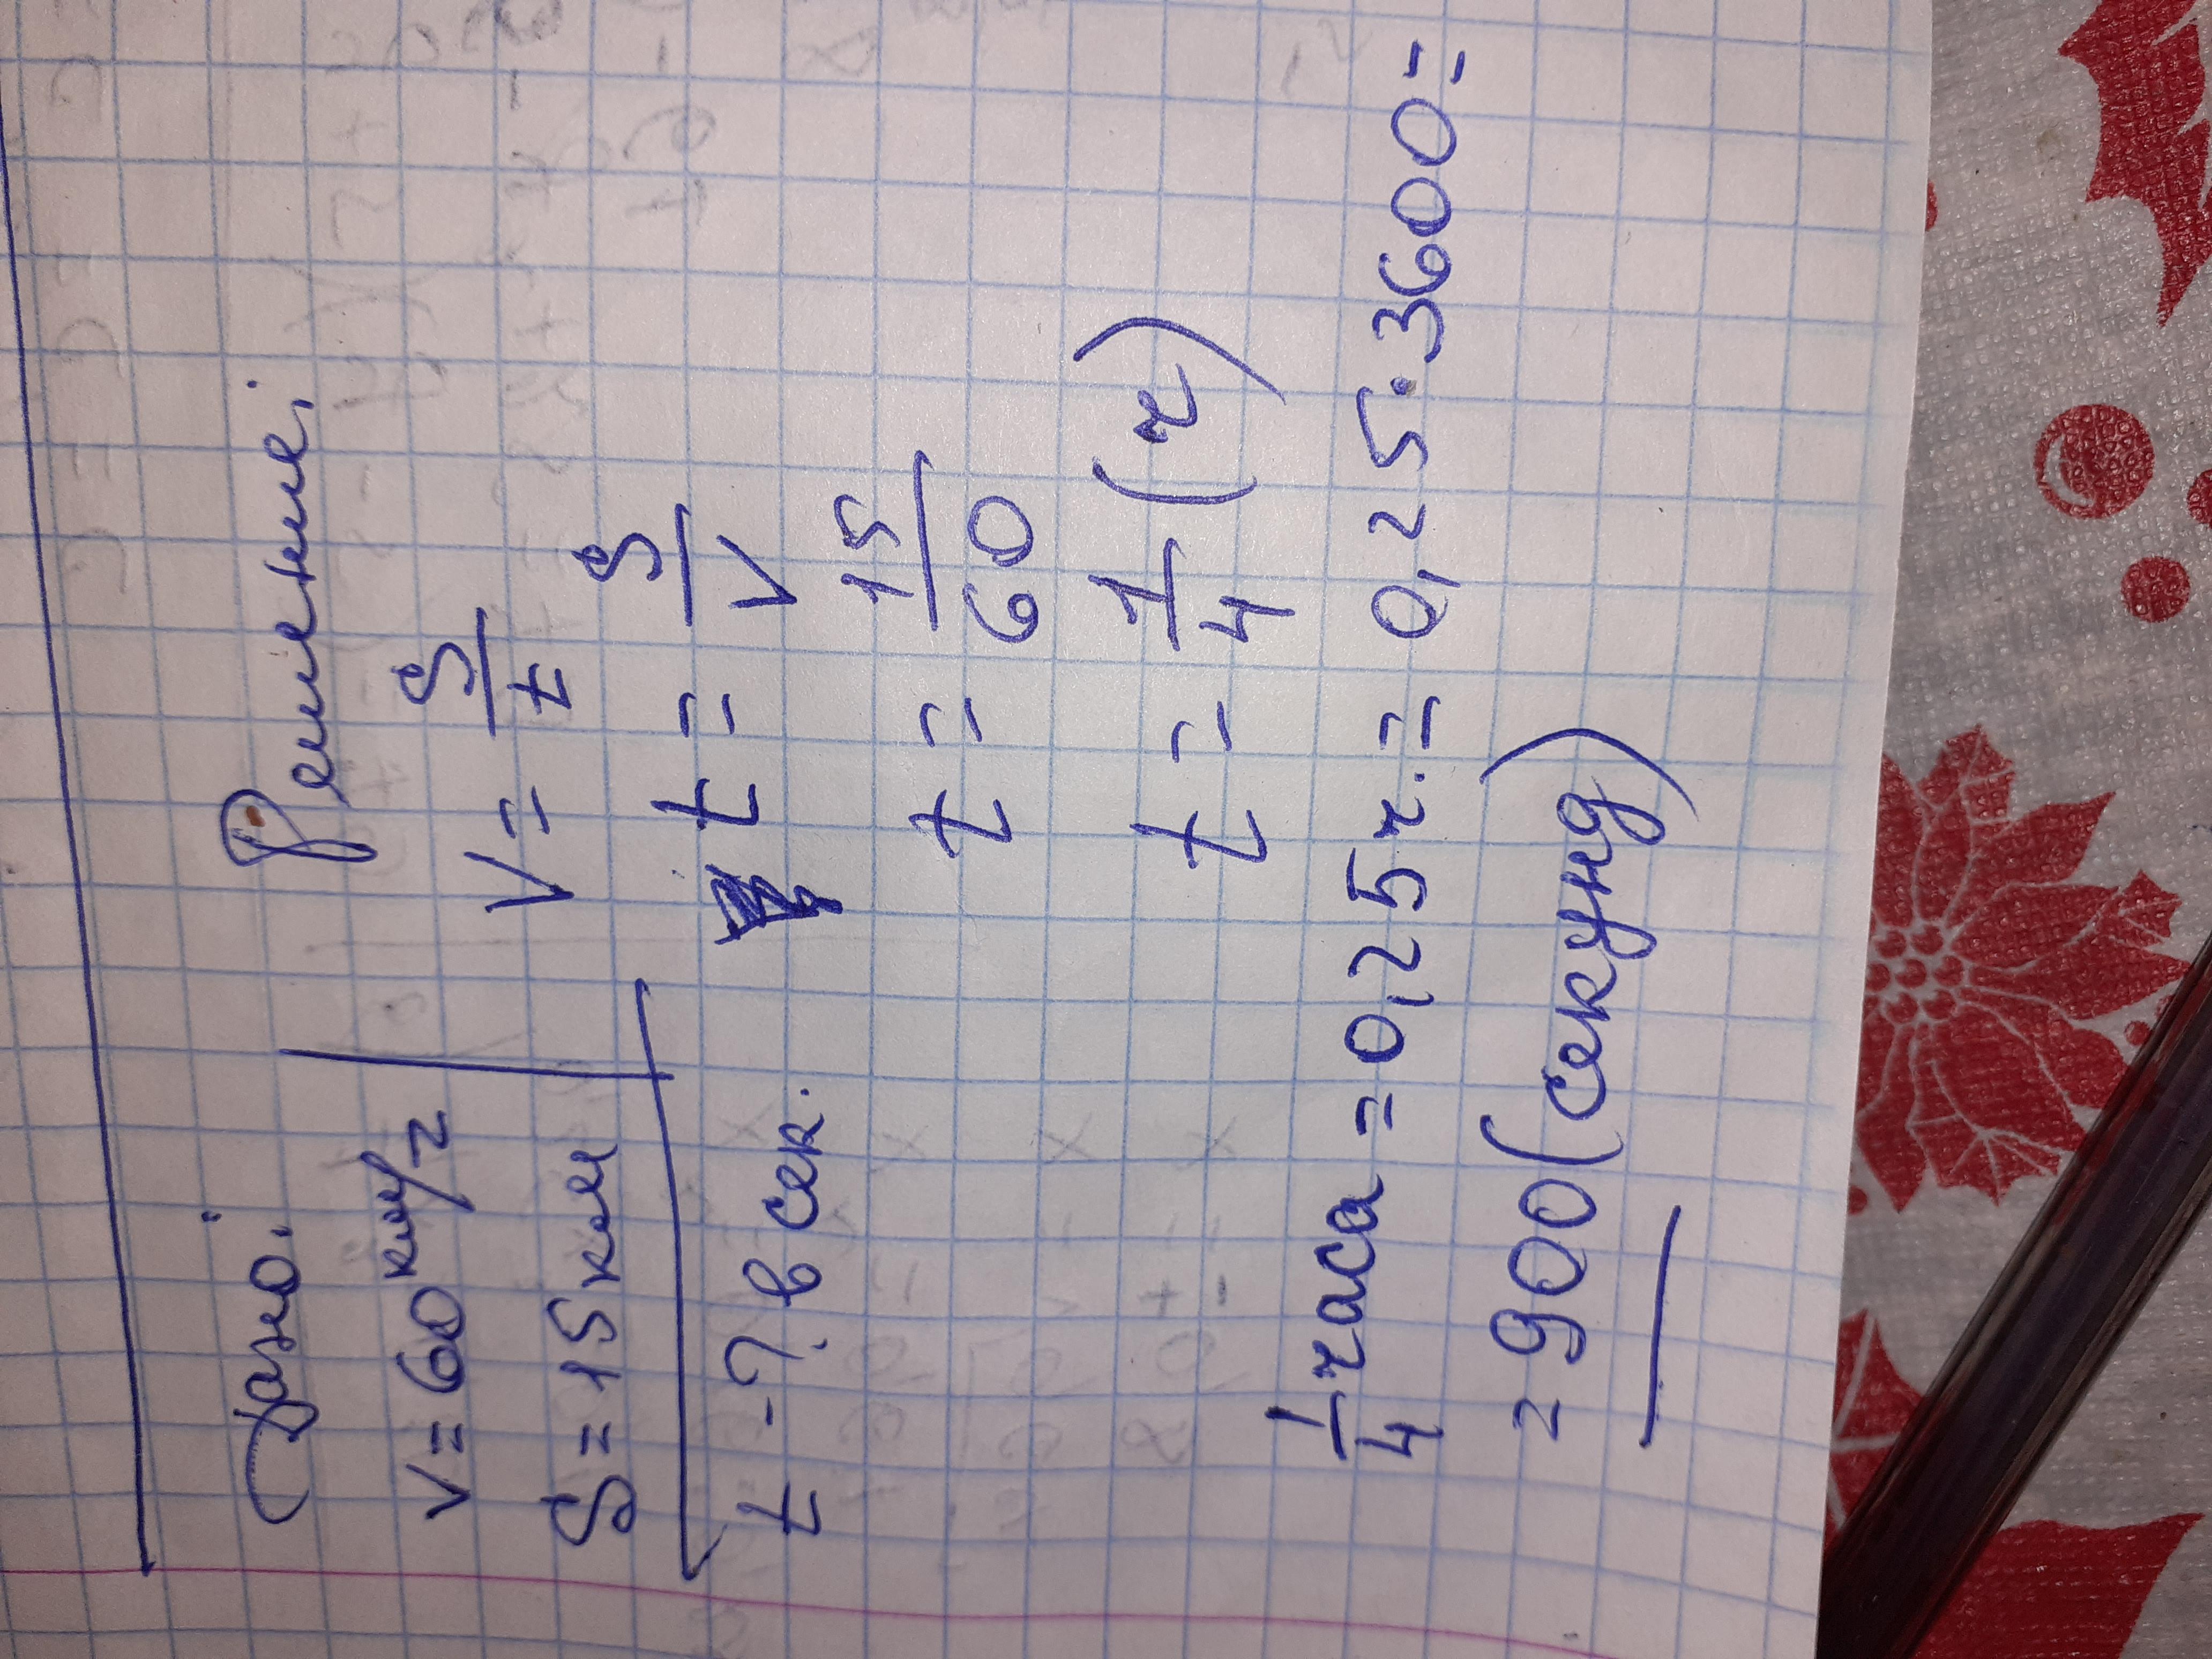 Дано:
V = 60 км/ч
S = 15 км
t - ? в сек.
Решение:
V = S/t
t = S/V
t = 15/60
t = 1/4 (ч)
1/4 часа = 0,25 ч. = 0,25 · 3600 =
= 900 (секунд)